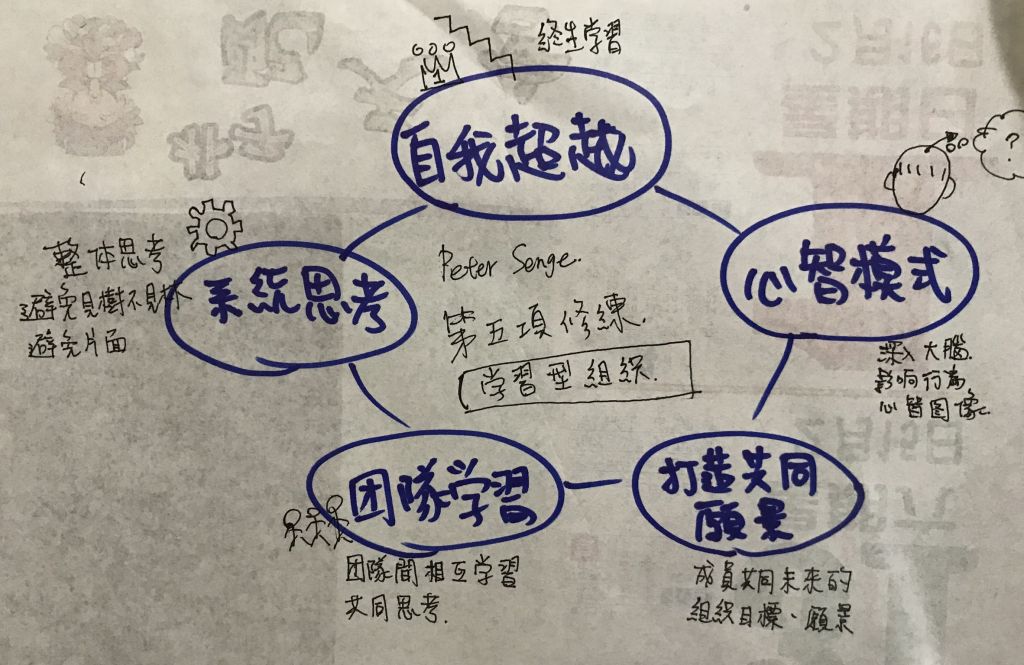 終生学習
自我超越
?
心智模式
深入大腦.
影响行為
心智图像.
Peter Senge.
第五項修練.
学習型組織.
整体思考
避免見樹不見林
避免片面
系統思考
团隊学習
团隊間相互学習
共同思考.
打造共同
願景
成員共同未来的
組織目標、願景
2月16日
星期日
2月15日
星期六